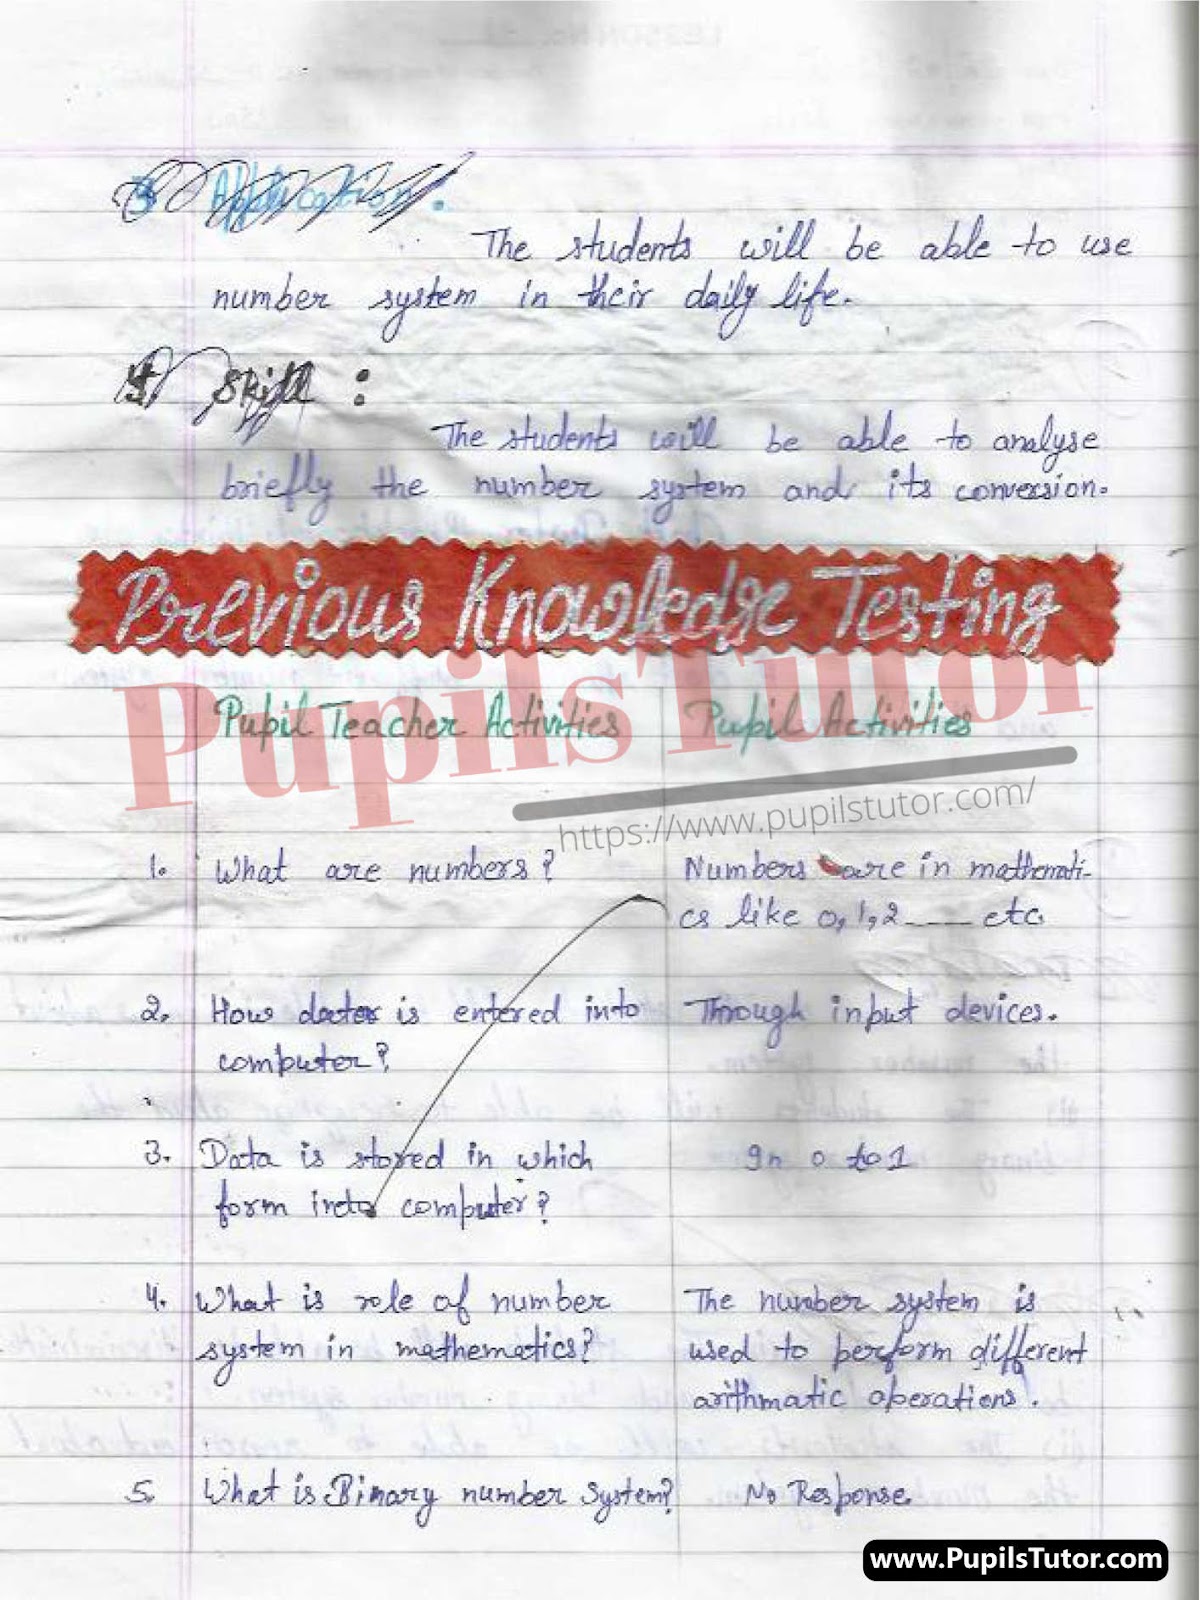 3 Application :
The students will be able to use
number system in their daily life.
4 Skill :
The students will be able to analyse
briefly the number system and its conversion.
Previous Knowledge Testing
PupilsTutor
Pupil Teacher Activities Pupil Activities
https://www.pupilstutor.com/
1. What are numbers? Numbers are in mathemati-
cs like 0,1,2 ____ etc.
2. How data is entered into Through input devices.
computer?
3. Data is stored in which In 0 to 1
form into computer?
4. What is role of number The number system is
system in mathematics? used to perform different
arithmatic operations.
5. What is Binary number system? No Response.
www.PupilsTutor.com